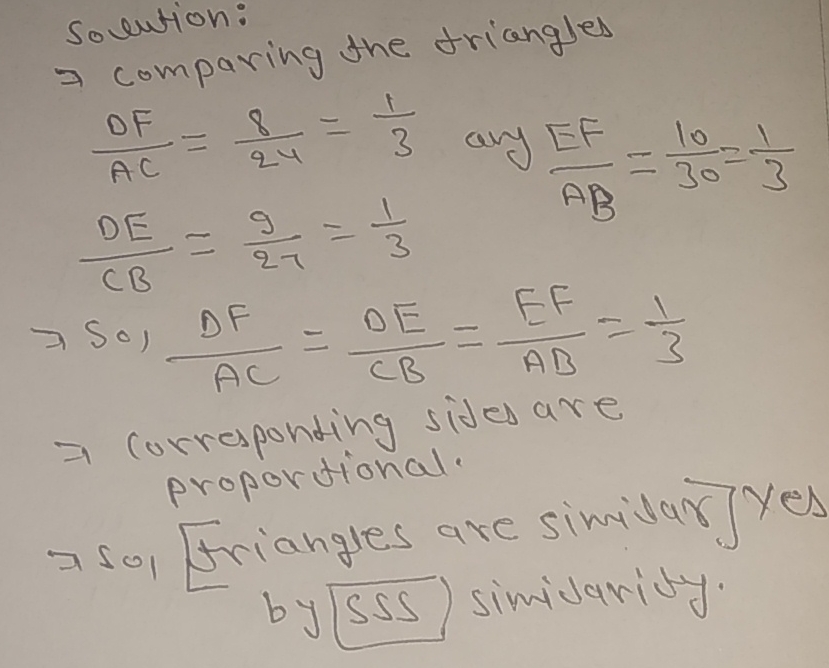 Solution:
⇒ comparing the triangles
DF/AC = 8/24 = 1/3 any EF/AB = 10/30 = 1/3
DE/CB = 9/27 = 1/3
⇒ So, DF/AC = DE/CB = EF/AB = 1/3
⇒ Corresponding sides are
proportional.
⇒ So, [triangles are similar] Yes
by [SSS] similarity.